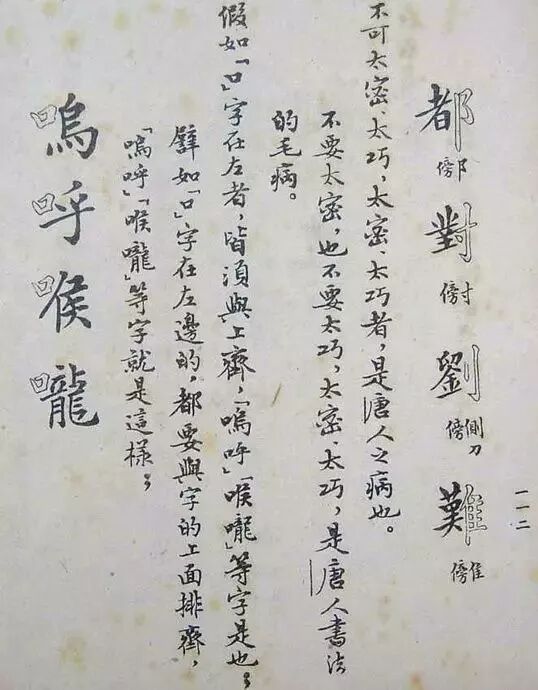 都對劉難
阝傍
寸傍
側刀傍
隹傍
一一二
不可太密、太巧，太密、太巧者，是唐人之病也。
不要太密，也不要太巧，太密、太巧，是唐人書法
的毛病。
假如「口」字在左者，皆須與上齊，「嗚呼」「喉嚨」等字是也；
譬如「口」字在左邊的，都要與字的上面排齊，
「嗚呼」「喉嚨」等字就是這樣；
嗚呼喉嚨